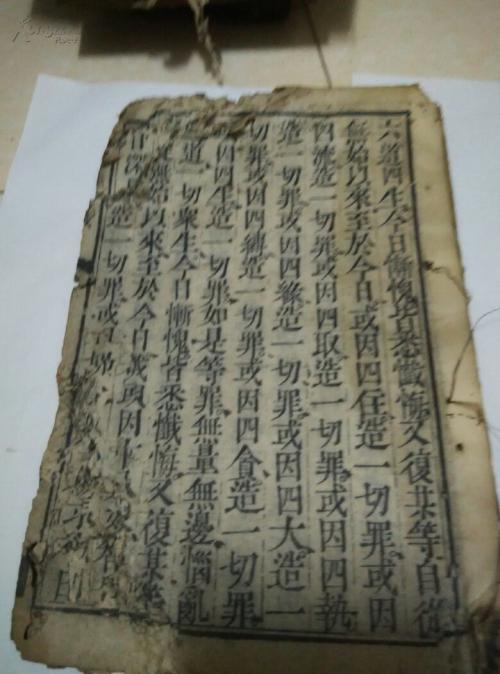 六道四生今日慚愧皆悉懺悔又復某等自從
無始以來至於今日或因四住造一切罪或因
四流造一切罪或因四取造一切罪或因四執
造一切罪或因四緣造一切罪或因四大造一
切罪或因四縛造一切罪或因四食造一切罪
或因四生造一切罪如是等罪無量無邊惱亂
道一切衆生今日慚愧皆悉懺悔又復某等
無始以來至於今日或因
造一切罪或